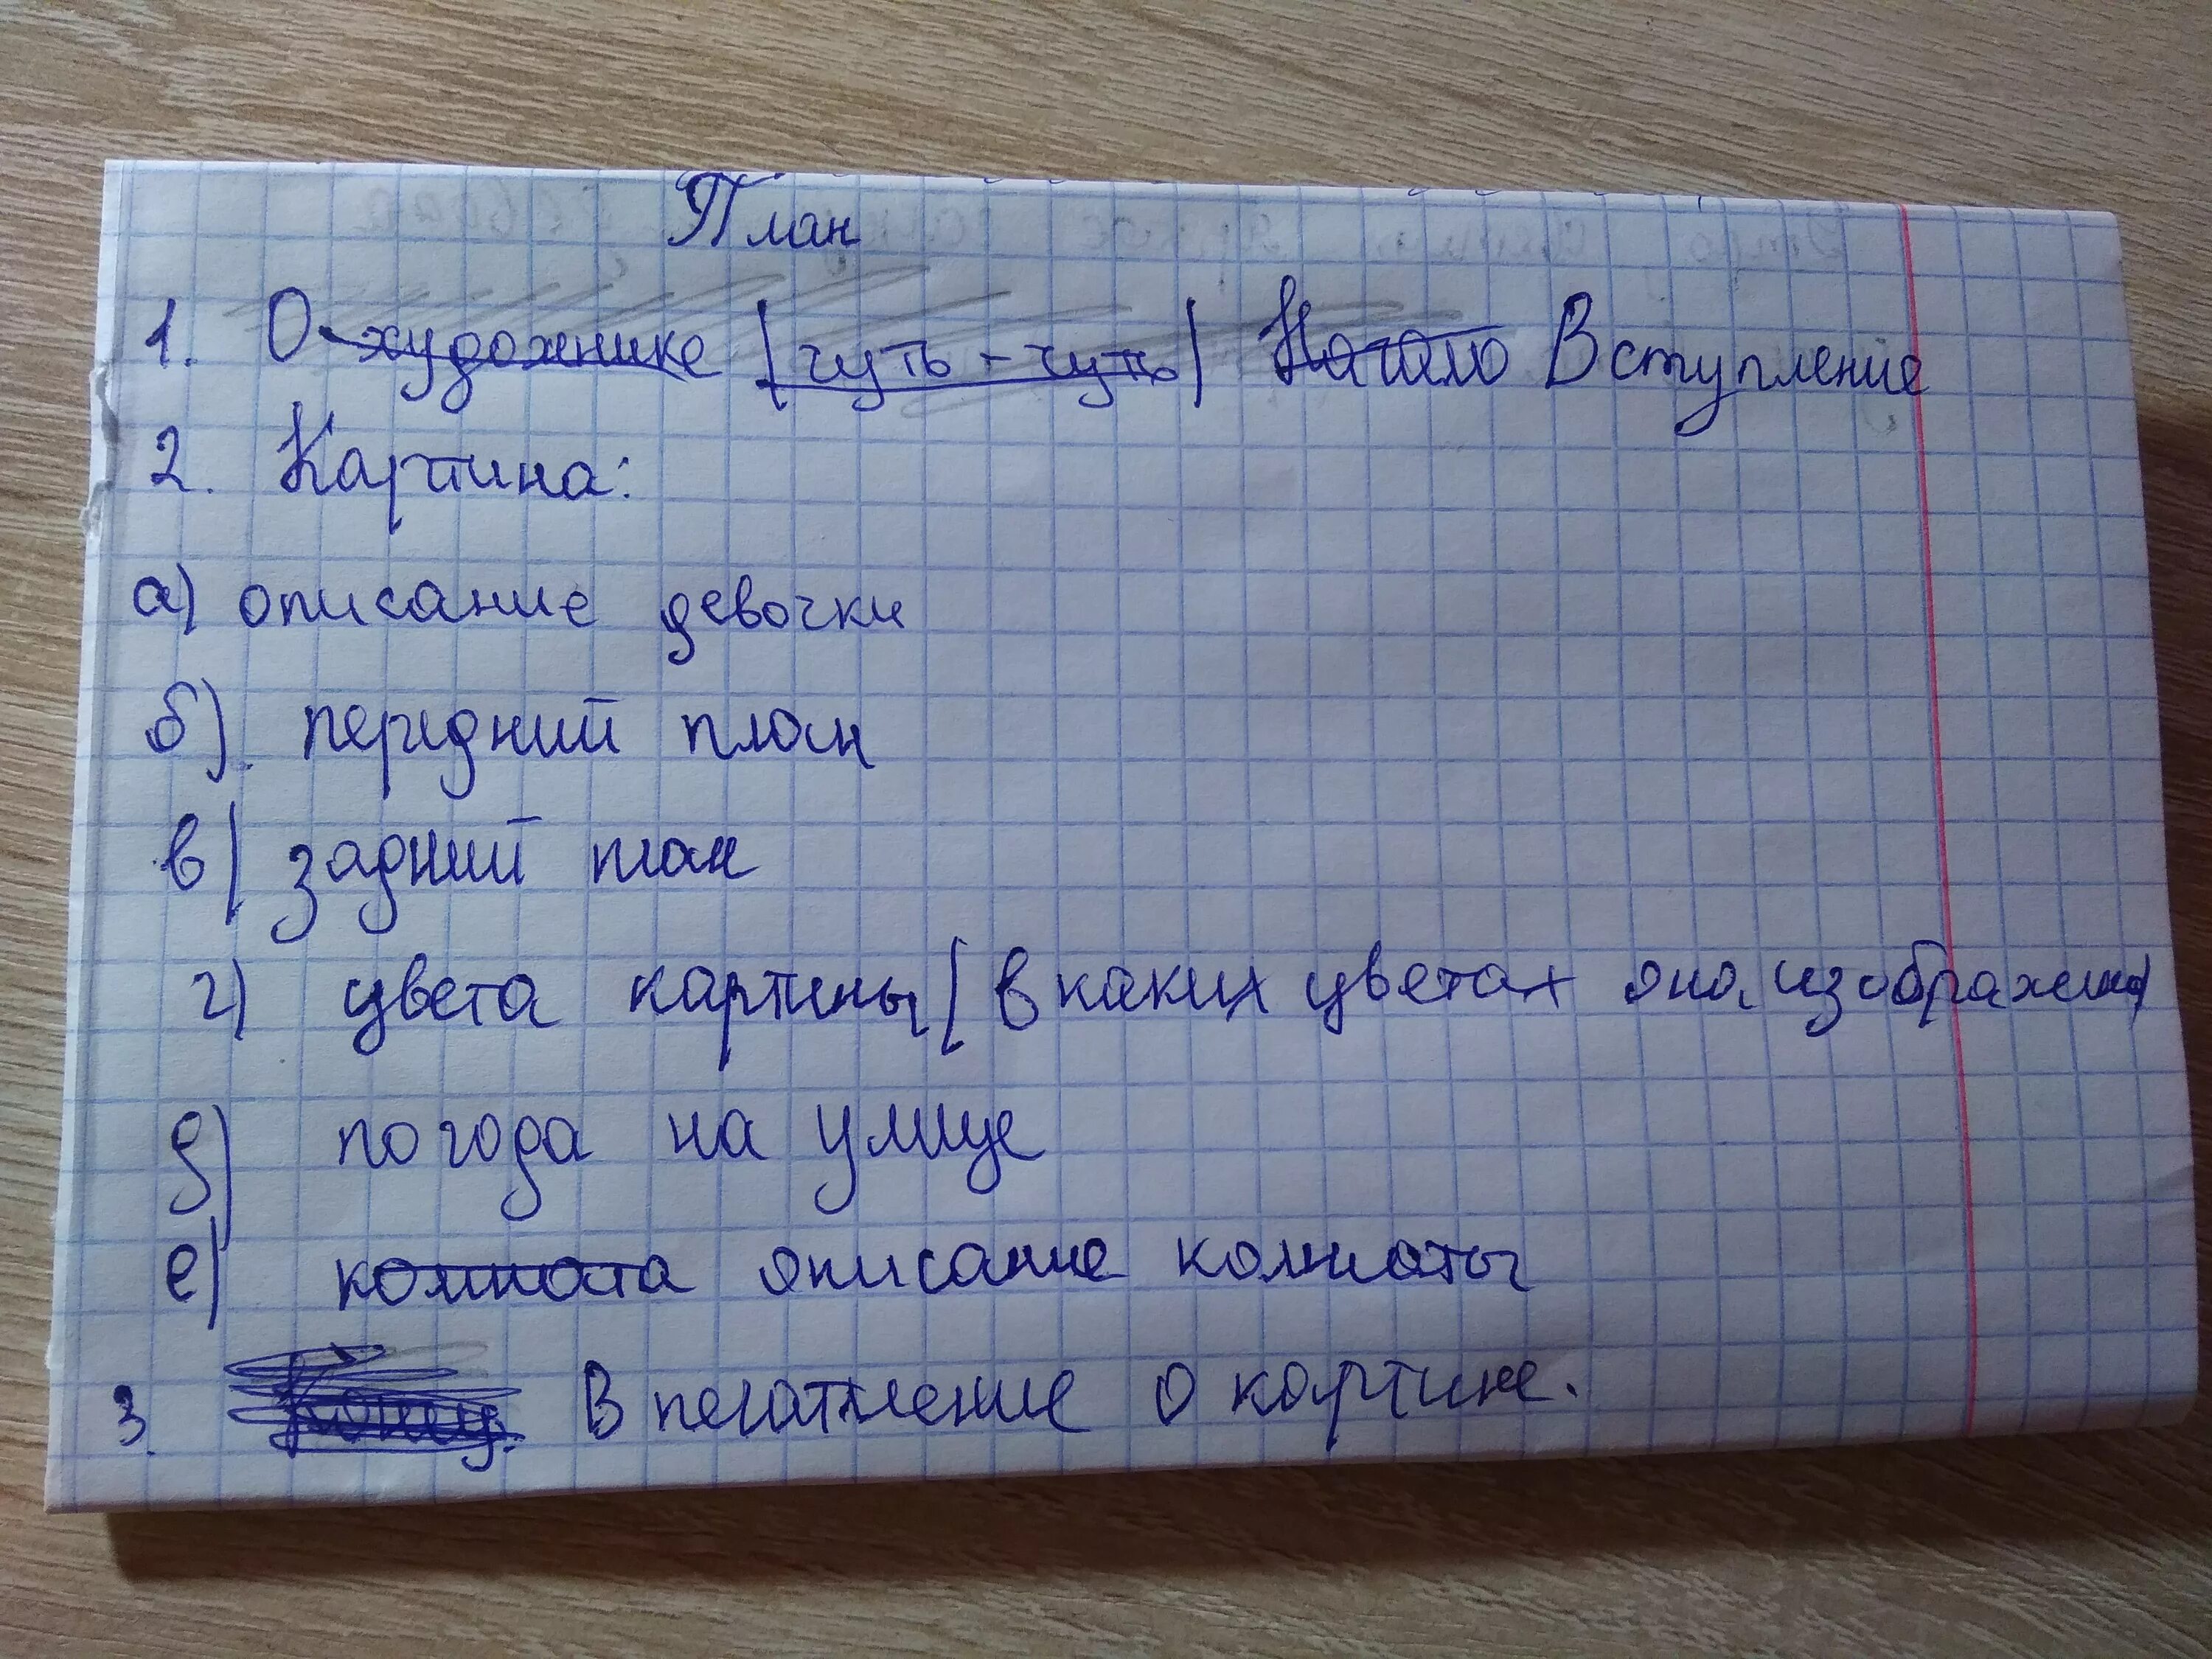 План
1. О художнике (чуть-чуть) Начало Вступление
2. Картина:
а) описание девочки
б). передний план
в) задний план
г) цвета картины (в каких цветах она изображена)
д) погода на улице
е) комната описание комнаты
3. Конец. Впечатление о картине.